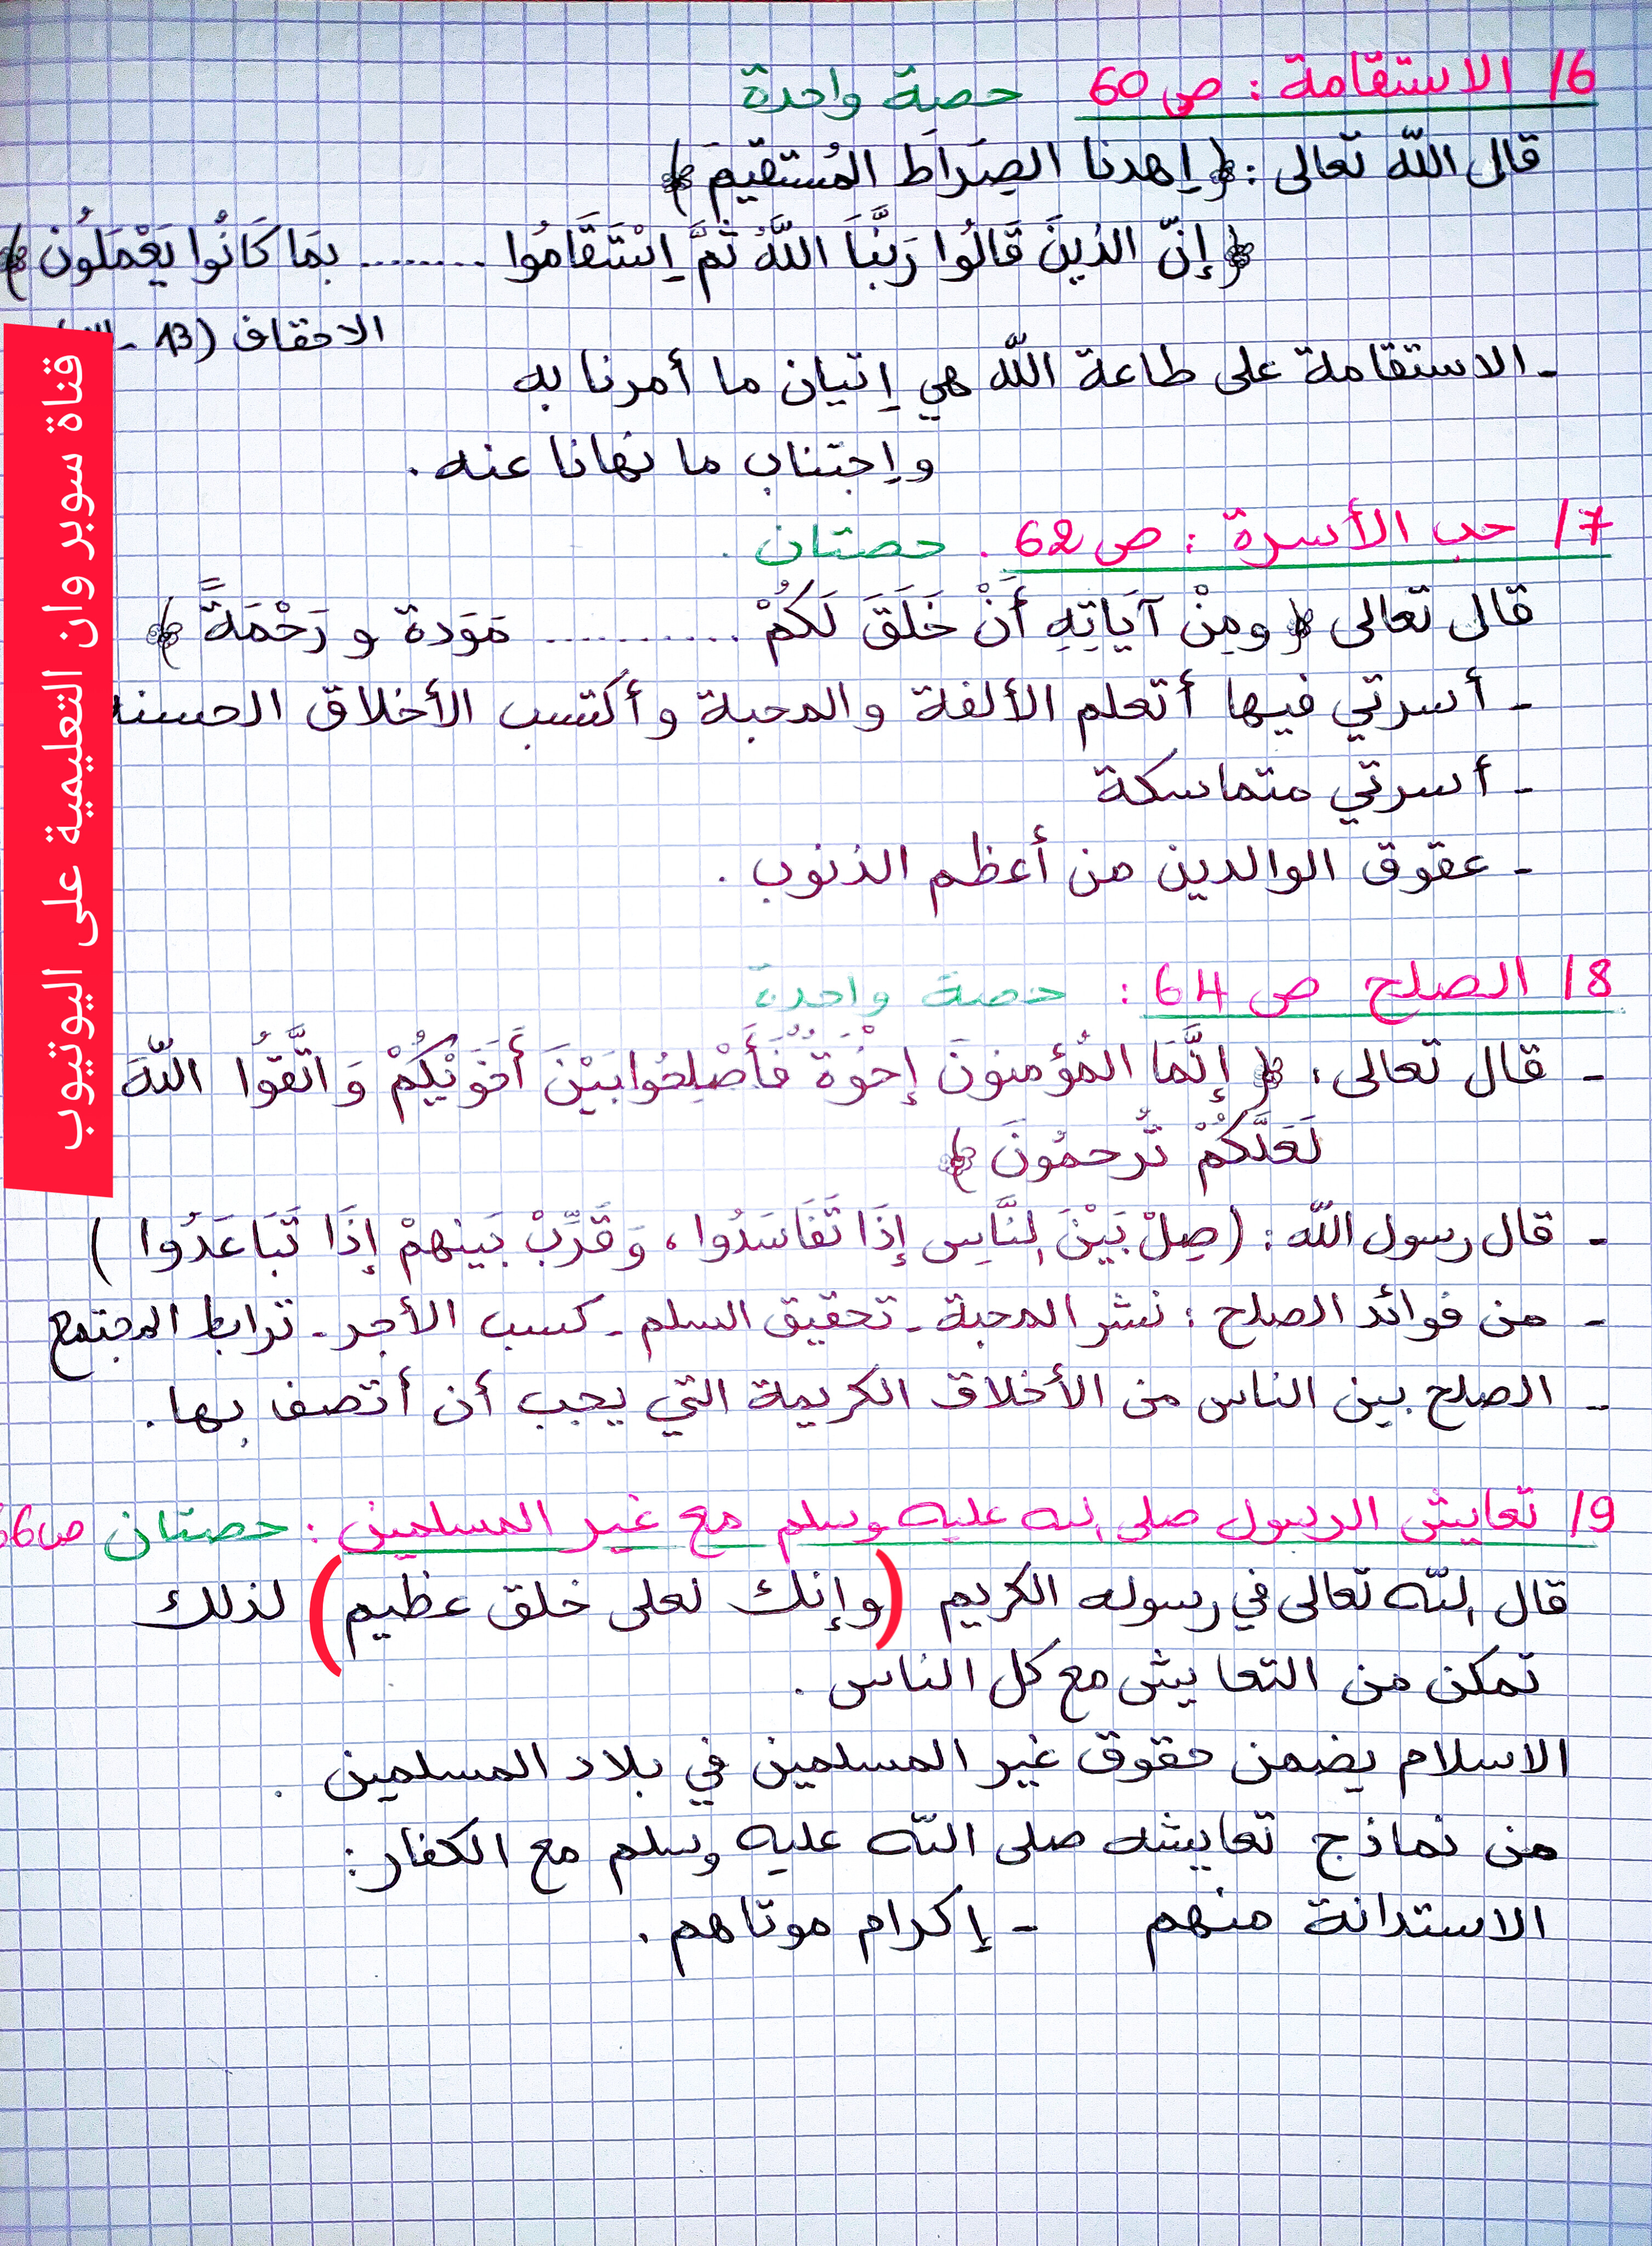 6/ الاستقامة : ص 60 حصة واحدة
قال الله تعالى : ﴿ إهدنا الصِرَاطَ المُستقيمَ ﴾
﴿ إنّ الذينَ قَالُوا رَبُّنَا اللَّهُ ثُمَّ اِسْتَقَامُوا ........ بمَا كَانُوا يَعْمَلُون ﴾
الاحقاف (13 -
- الاستقامة على طاعة الله هي إتيان ما أمرنا به
وإجتناب ما نهانا عنه .
7/ حب الأسرة : ص 62 . حصتان .
قال تعالى ﴿ ومِنْ آيَاتِهِ أَنْ خَلَقَ لَكُمْ .......... مَوَدة و رَحْمَةً ﴾
- أسرتي فيها أتعلم الألفة والمحبة وأكتسب الأخلاق الحسنة
- أسرتي متماسكة
- عقوق الوالدين من أعظم الذنوب .
8/ الصلح ص 64 : حصة واحدة
- قال تعالى : ﴿ إِنَّمَا المُؤمنونَ إِخْوَةٌ فَأَصْلِحُوا بَيْنَ أَخَوَيْكُمْ وَاتَّقُوا اللّهَ
لَعَلَّكُمْ تُرحمُونَ ﴾
- قال رسول الله : (صِلْ بَيْنَ النَّاسِ إِذَا تَفَاسَدُوا ، وَقَرِّبْ بَينهمْ إِذَا تَبَاعَدُوا )
- من فوائد الصلح : نشر المحبة - تحقيق السلم - كسب الأجر - ترابط المجتمع
- الصلح بين الناس من الأخلاق الكريمة التي يجب أن أتصف بها .
9/ تعايش الرسول صلى الله عليه وسلم مع غير المسلمين : حصتان ص66
قال الله تعالى في رسوله الكريم (وإنك لعلى خلق عظيم) لذلك
تمكن من التعايش مع كل الناس .
الاسلام يضمن حقوق غير المسلمين في بلاد المسلمين .
من نماذج تعايشه صلى الله عليه وسلم مع الكفار :
الاستدانة منهم - إكرام موتاهم .
قناة سوبر وان التعليمية على اليوتيوب